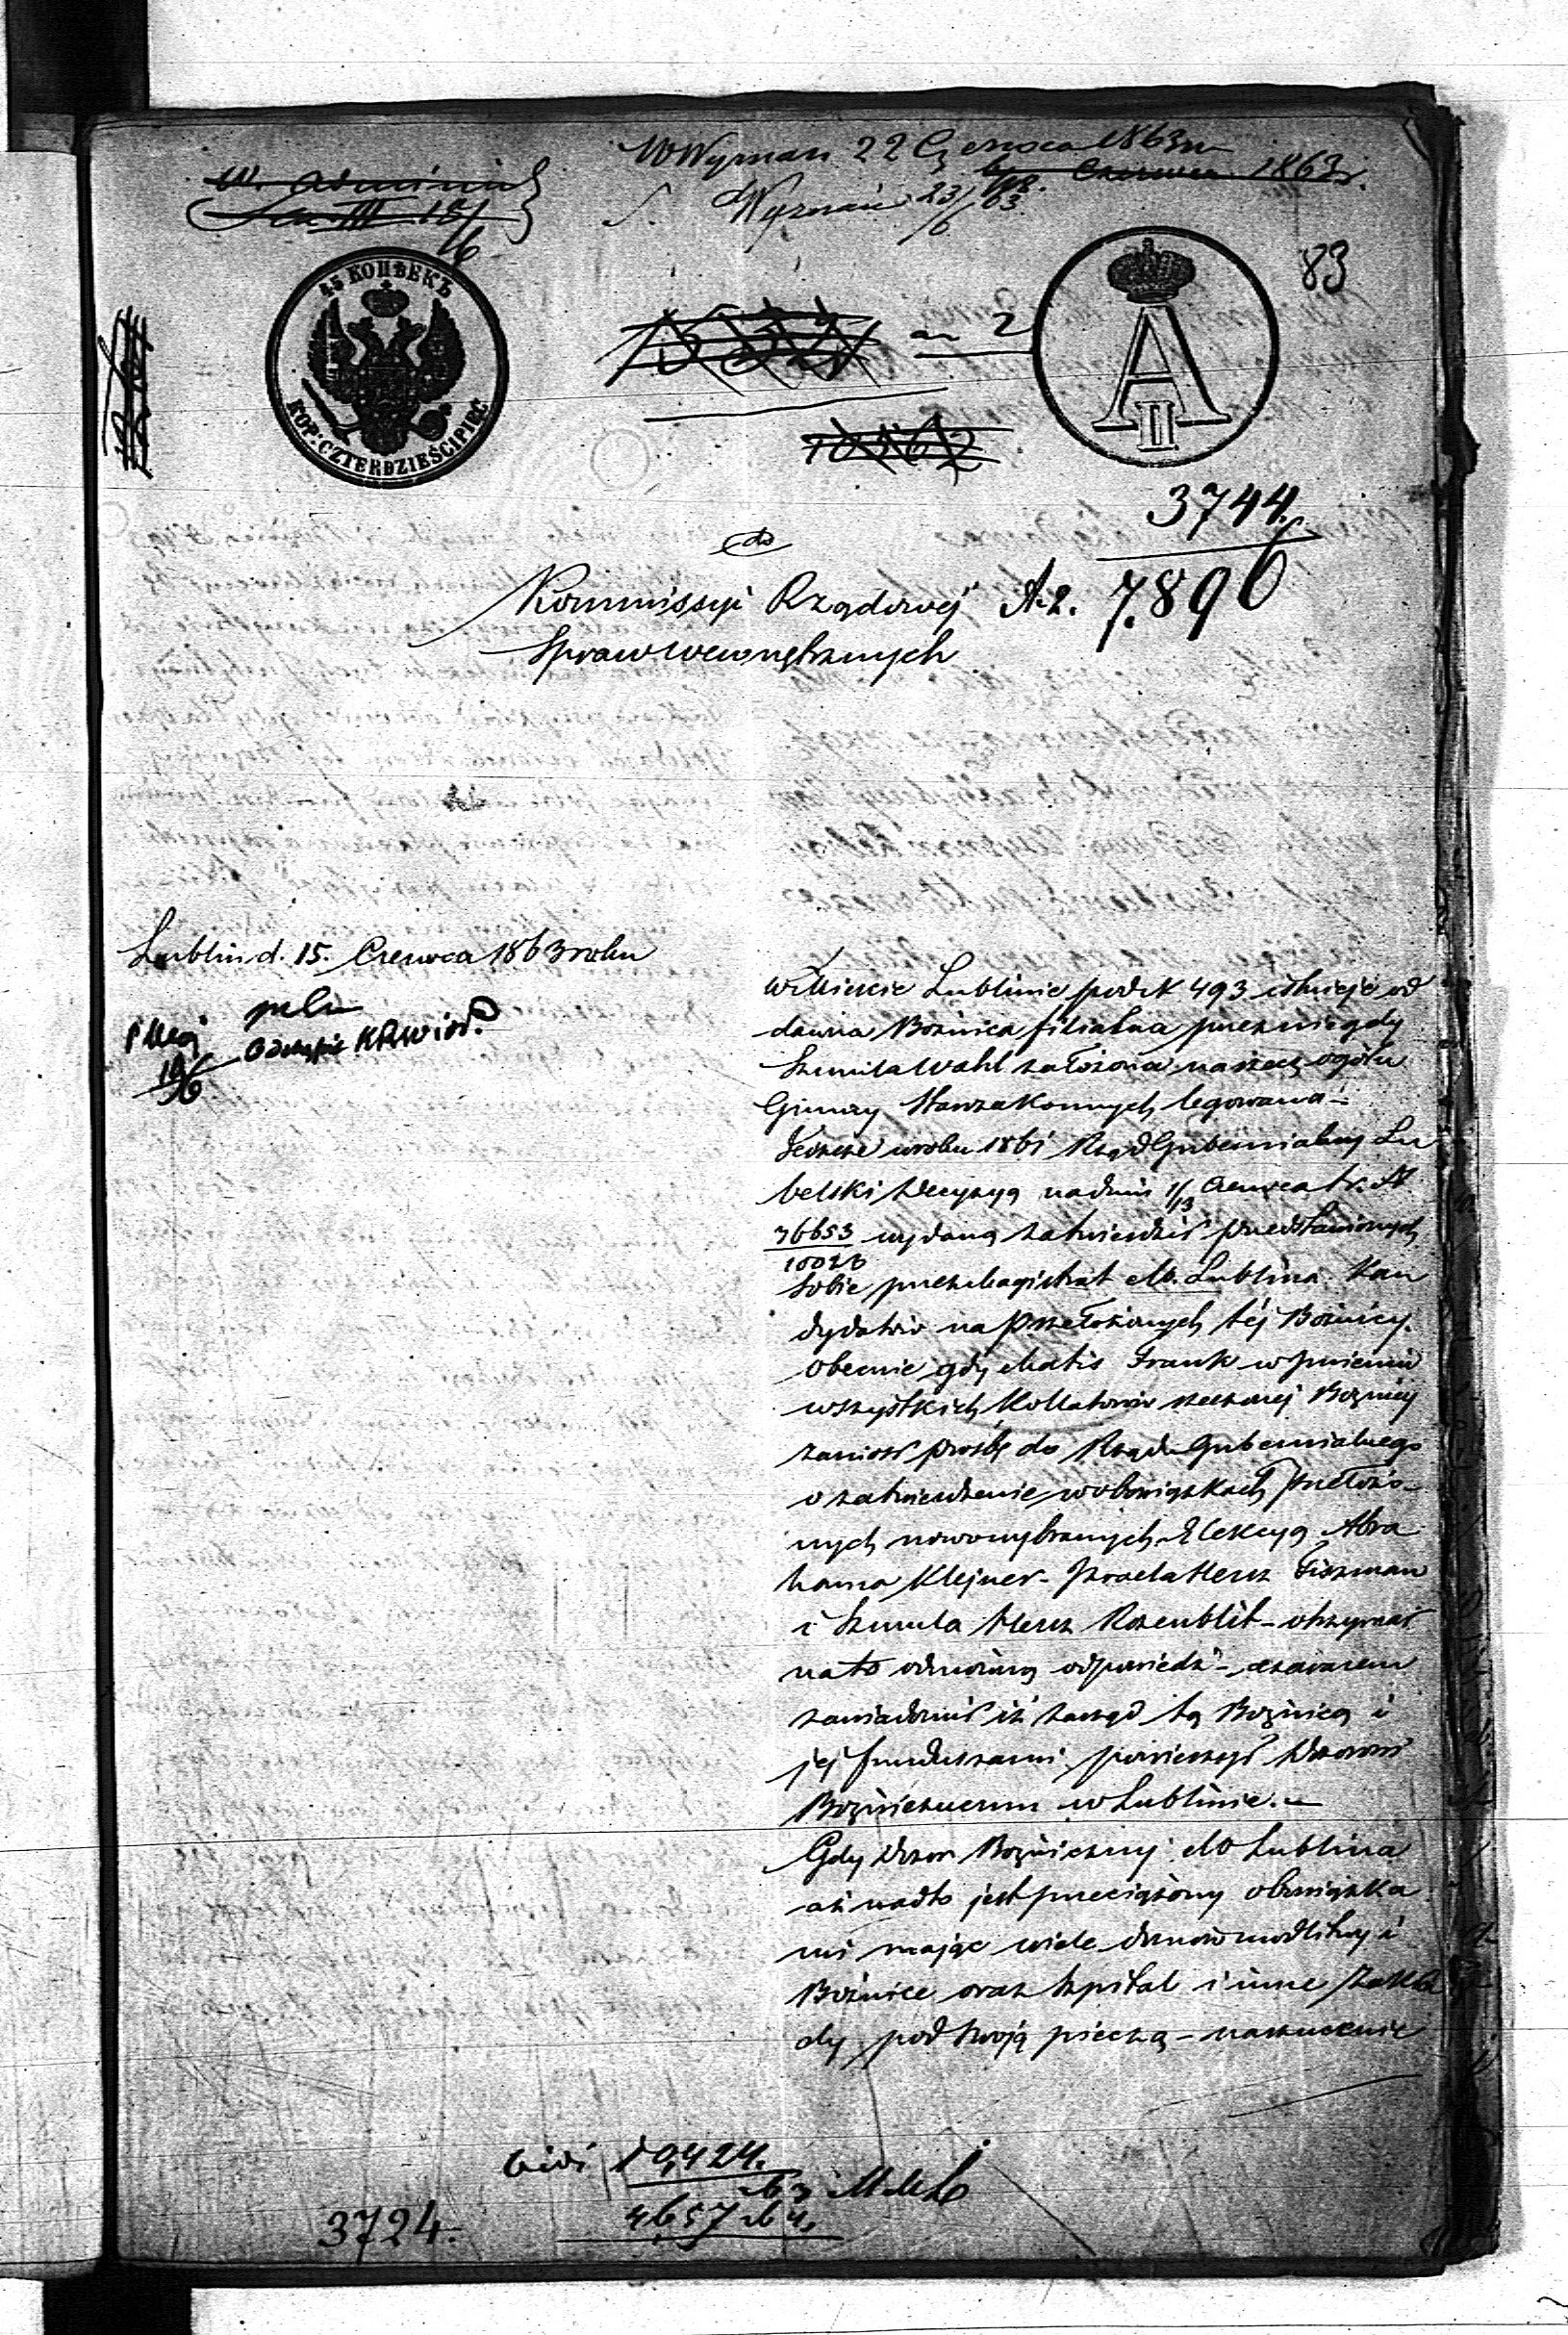 W Wyznań 22 Czerwca 1863 r
Czerwca 1863 r.
Wyznań 23/6 63
83
45 КОПѢЕКЪ
КОР: CZTERDZIEŚCI PIĘĆ
A II
3744.
do
Kommissyi Rządowej
7.896
Spraw Wewnętrznych
Lublin d. 15. Czerwca 1863 roku
w Mieście Lublinie pod N 493 istnieje od
dawna Boznica filialna przez niegdy
Szmula Wahl założona na rzecz ogółu
Gminy Starozakonnych legowana –
Jeszcze w roku 1861 Rząd Gubernialny Lu
belski decyzyą na dniu 1/13 Czerwca t.r. N
36653
wydaną zatwierdził przedstawionych
sobie przez Magistrat M. Lublina Kan
dydatów na Przełożonych téj Boznicy.
Obecnie gdy Matis Frank w imieniu
wszystkich Kollatorów rzeczonej Boznicy
zaniosł prosbę do Rządu Gubernialnego
o zatwierdzenie w obowiązkach Przełożo-
nych nowowybranych Elekcyą Abra
hama Klejner – Izraela Hersz Fiszman
i Szmula Hersz Rozenblit – otrzymał
na to odmówną odpowiedź – zarazem
zawiadomił iż zarząd tą Boznicą i
jej funduszami powierzył Dozorowi
Bozniczemu w Lublinie. –
Gdy Dozor Bozniczny M Lublina
aż nadto jest przeciążony obowiązka
mi mając wiele domów modlitwy i
Boznice oraz szpital i inne Zakła
dy pod swoją pieczą –
vidi 10,424.
4657
3724.